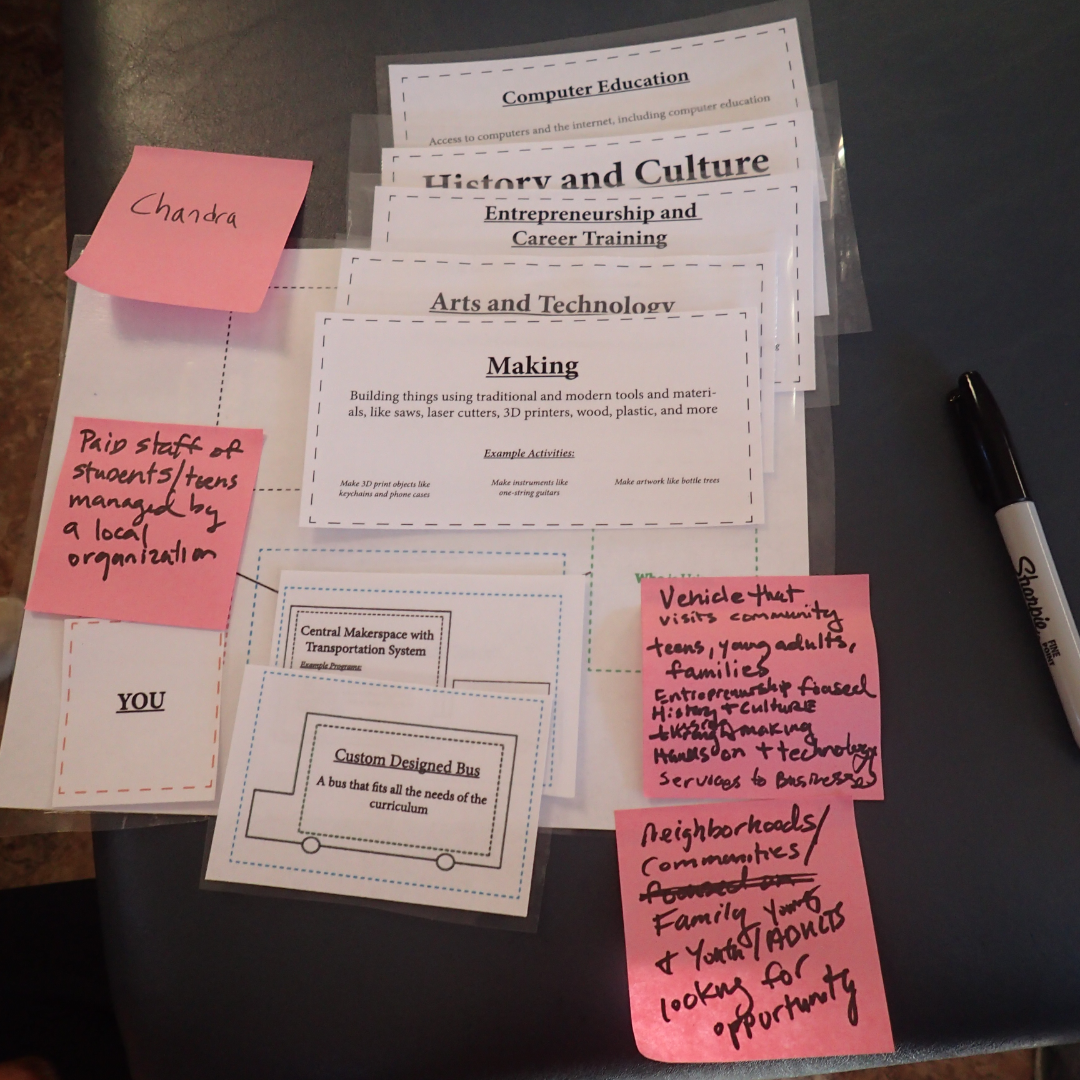 Computer Education
Access to computers and the internet, including computer education
History and Culture
Entrepreneurship and
Career Training
Arts and Technology
Making
Building things using traditional and modern tools and materi-
als, like saws, laser cutters, 3D printers, wood, plastic, and more
Example Activities:
Make 3D print objects like
keychains and phone cases
Make instruments like
one-string guitars
Make artwork like bottle trees
Chandra
Paid staff of
students/teens
managed by
a local
organization
YOU
Central Makerspace with
Transportation System
Example Programs:
Custom Designed Bus
A bus that fits all the needs of the
curriculum
Vehicle that
visits community
teens, young adults,
families
Entrepreneurship focused
History + culture
making
Hands on + technology
Services to Businesses
Neighborhoods/
Communities/
focused on
Family young
+ Youth/ADULTS
looking for
opportunity
Sharpie
FINE
POINT